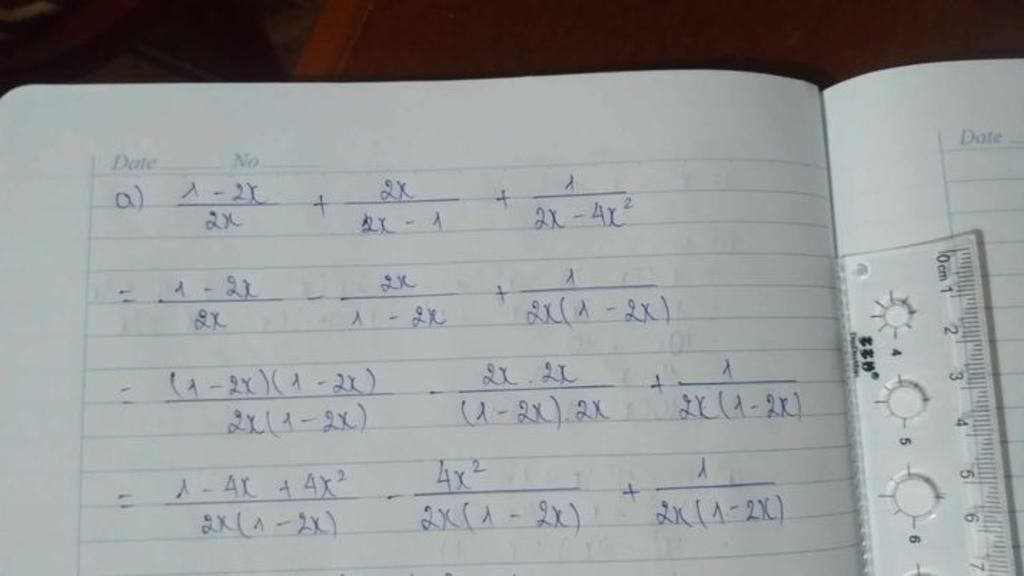 Date No
Date
a) \frac{1 - 2x}{2x} + \frac{2x}{2x - 1} + \frac{1}{2x - 4x^2}
= \frac{1 - 2x}{2x} - \frac{2x}{1 - 2x} + \frac{1}{2x(1 - 2x)}
= \frac{(1 - 2x)(1 - 2x)}{2x(1 - 2x)} - \frac{2x . 2x}{(1 - 2x) . 2x} + \frac{1}{2x(1 - 2x)}
= \frac{1 - 4x + 4x^2}{2x(1 - 2x)} - \frac{4x^2}{2x(1 - 2x)} + \frac{1}{2x(1 - 2x)}
0cm 1 2 3 4 5 6 7
4
5
6